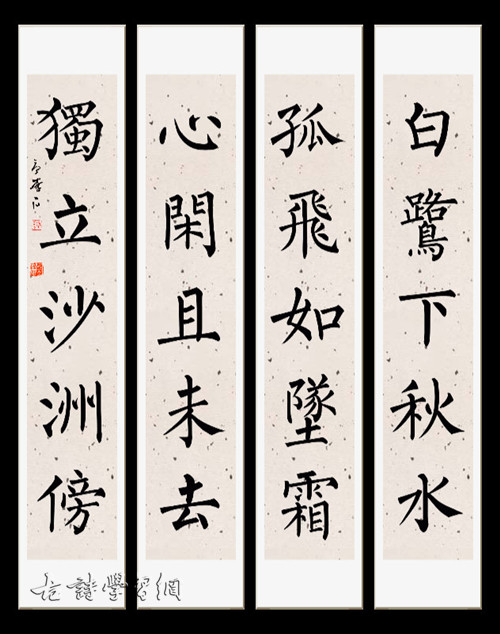 白鷺下秋水
孤飛如墜霜
心閑且未去
獨立沙洲傍